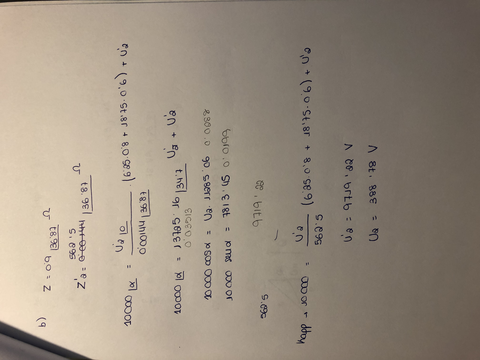 b)
Z = 0'9 |36'87 Ω
562'5
Z'2 = 0'00144 |36'87 Ω
10000 |α = U'2 |0 / 0'00144 |36'87 · (6'25·0'8 + 18'75·0'6) + U'2
10000 |α = 13725'16 |34'7 U'2 + U'2
0'03513
10000 cos α = U2 11285'06 0'0288
10000 sen α = 7813'45 0'0199
9719'22
562'5
Kapp → 10000 = U'2 / 562'5 (6'25·0'8 + 18'75·0'6) + U'2
U'2 = 9719'22 V
U2 = 388'78 V